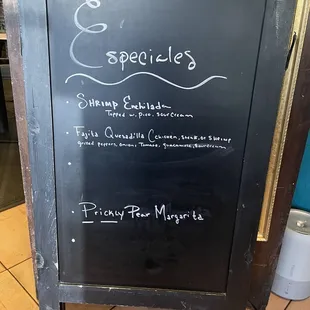 Especiales
• Shrimp Enchilada
Topped w/ Pico, Sour Cream
• Fajita Quesadilla (chicken, steak, or shrimp
grilled peppers, onions, Tomato, guacamole, sour cream
•
• Prickly Pear Margarita
•